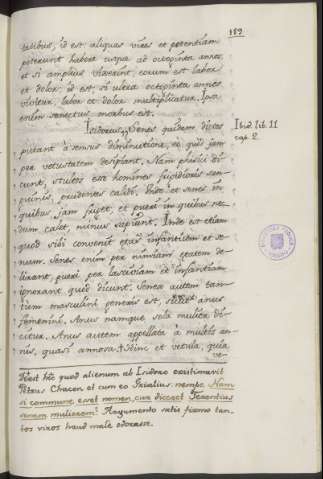 189
talibus, id est, aliquas vires et potentiam
poterunt habere usque ad octoginta annos
et si amplius vixerint, eorum est labor
et dolor, id est, si ultra octoginta annos
vixerint, labor et dolor multiplicatur. Ipsa
enim senectus morbus est.
Isidorus. Senes quidam dictos
putant a sensus diminutione, eo quod jam
per vetustatem desipiant. Nam phisici di-
cunt, stultos esse homines frigidioris san-
guinis, prudentes calidi. Unde et senes in
quibus jam friget, et pueri in quibus nec-
dum calet, minus sapiunt. Inde est etiam
quod sibi convenit etas infantium et se-
num. Senes enim per nimiam etatem de-
lirant, pueri per lasciviam et infantiam
ignorant quid dicunt. Senex autem tan-
tum masculini generis est, sicut anus
feminini. Anus namque sola mulier di-
citur. Anus autem appellata a multis an-
nis, quasi annosa. Hinc et vetula, quia
ve-
Ibid. lib. 11
cap. 2.
Totum hoc quod alienum ab Isidoro existimavit
Petrus Chacon et cum eo Grialius nempe Nam
si commune esset nomen, cur diceret Terentius
senem mulierem? Argumento satis firmo tan-
tos viros haud male odorasse.